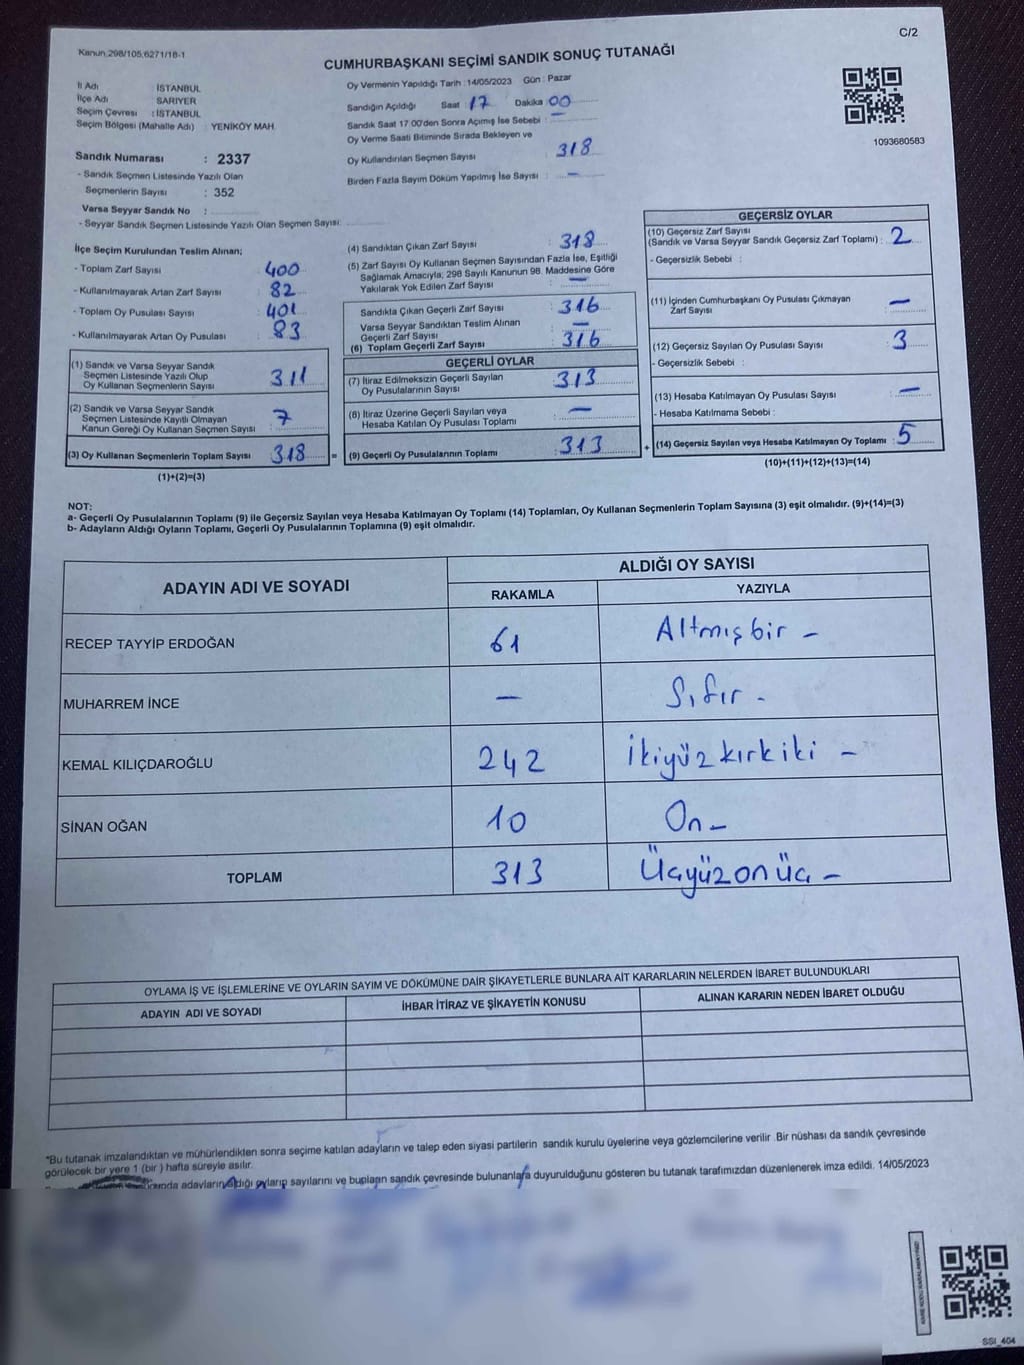 Kanun.298/105,6271/18-1
C/2
CUMHURBAŞKANI SEÇİMİ SANDIK SONUÇ TUTANAĞI
İl Adı İSTANBUL
İlçe Adı SARIYER
Seçim Çevresi : İSTANBUL
Seçim Bölgesi (Mahalle Adı) : YENİKÖY MAH.
Sandık Numarası : 2337
- Sandık Seçmen Listesinde Yazılı Olan
Seçmenlerin Sayısı : 352
Varsa Seyyar Sandık No :
- Seyyar Sandık Seçmen Listesinde Yazılı Olan Seçmen Sayısı:
Oy Vermenin Yapıldığı Tarih : 14/05/2023 Gün : Pazar
Sandığın Açıldığı Saat : 17 Dakika 00
Sandık Saat 17.00'den Sonra Açımış İse Sebebi : —
Oy Verme Saati Bitiminde Sırada Bekleyen ve
Oy Kullandırılan Seçmen Sayısı : 318
Birden Fazla Sayım Döküm Yapılmış İse Sayısı : —
1093680583
İlçe Seçim Kurulundan Teslim Alınan;
- Toplam Zarf Sayısı 400
- Kullanılmayarak Artan Zarf Sayısı : 82
- Toplam Oy Pusulası Sayısı : 401
- Kullanılmayarak Artan Oy Pusulası : 83
(1) Sandık ve Varsa Seyyar Sandık
Seçmen Listesinde Yazılı Olup
Oy Kullanan Seçmenlerin Sayısı : 311
(2) Sandık ve Varsa Seyyar Sandık
Seçmen Listesinde Kayıtlı Olmayan
Kanun Gereği Oy Kullanan Seçmen Sayısı : 7
(3) Oy Kullanan Seçmenlerin Toplam Sayısı : 318
(1)+(2)=(3)
=
(4) Sandıktan Çıkan Zarf Sayısı : 318
(5) Zarf Sayısı Oy Kullanan Seçmen Sayısından Fazla İse, Eşitliği
Sağlamak Amacıyla; 298 Sayılı Kanunun 98. Maddesine Göre
Yakılarak Yok Edilen Zarf Sayısı : —
Sandıkta Çıkan Geçerli Zarf Sayısı : 316
Varsa Seyyar Sandıktan Teslim Alınan
Geçerli Zarf Sayısı : —
(6) Toplam Geçerli Zarf Sayısı : 316
GEÇERLİ OYLAR
(7) İtiraz Edilmeksizin Geçerli Sayılan
Oy Pusulalarının Sayısı : 313
(8) İtiraz Üzerine Geçerli Sayılan veya
Hesaba Katılan Oy Pusulası Toplamı : —
(9) Geçerli Oy Pusulalarının Toplamı : 313
+
GEÇERSİZ OYLAR
(10) Geçersiz Zarf Sayısı
(Sandık ve Varsa Seyyar Sandık Geçersiz Zarf Toplamı) : 2
- Geçersizlik Sebebi :
(11) İçinden Cumhurbaşkanı Oy Pusulası Çıkmayan
Zarf Sayısı : —
(12) Geçersiz Sayılan Oy Pusulası Sayısı : 3
- Geçersizlik Sebebi :
(13) Hesaba Katılmayan Oy Pusulası Sayısı : —
- Hesaba Katılmama Sebebi :
(14) Geçersiz Sayılan veya Hesaba Katılmayan Oy Toplamı : 5
(10)+(11)+(12)+(13)=(14)
NOT:
a- Geçerli Oy Pusulalarının Toplamı (9) ile Geçersiz Sayılan veya Hesaba Katılmayan Oy Toplamı (14) Toplamları, Oy Kullanan Seçmenlerin Toplam Sayısına (3) eşit olmalıdır. (9)+(14)=(3)
b- Adayların Aldığı Oyların Toplamı, Geçerli Oy Pusulalarının Toplamına (9) eşit olmalıdır.
ADAYIN ADI VE SOYADI
ALDIĞI OY SAYISI
RAKAMLA YAZIYLA
RECEP TAYYİP ERDOĞAN 61 Altmışbir —
MUHARREM İNCE — Sıfır -
KEMAL KILIÇDAROĞLU 242 İkiyüzkırkiki —
SİNAN OĞAN 10 On —
TOPLAM 313 Üçyüzonüç —
OYLAMA İŞ VE İŞLEMLERİNE VE OYLARIN SAYIM VE DÖKÜMÜNE DAİR ŞİKAYETLERLE BUNLARA AİT KARARLARIN NELERDEN İBARET BULUNDUKLARI
ADAYIN ADI VE SOYADI İHBAR İTİRAZ VE ŞİKAYETİN KONUSU ALINAN KARARIN NEDEN İBARET OLDUĞU
*Bu tutanak imzalandıktan ve mühürlendikten sonra seçime katılan adayların ve talep eden siyasi partilerin sandık kurulu üyelerine veya gözlemcilerine verilir .Bir nüshası da sandık çevresinde
görülecek bir yere 1 (bir ) hafta süreyle asılır.
adayların aldığı oyların sayılarını ve bunların sandık çevresinde bulunanlara duyurulduğunu gösteren bu tutanak tarafımızdan düzenlenerek imza edildi. 14/05/2023
SSI_404